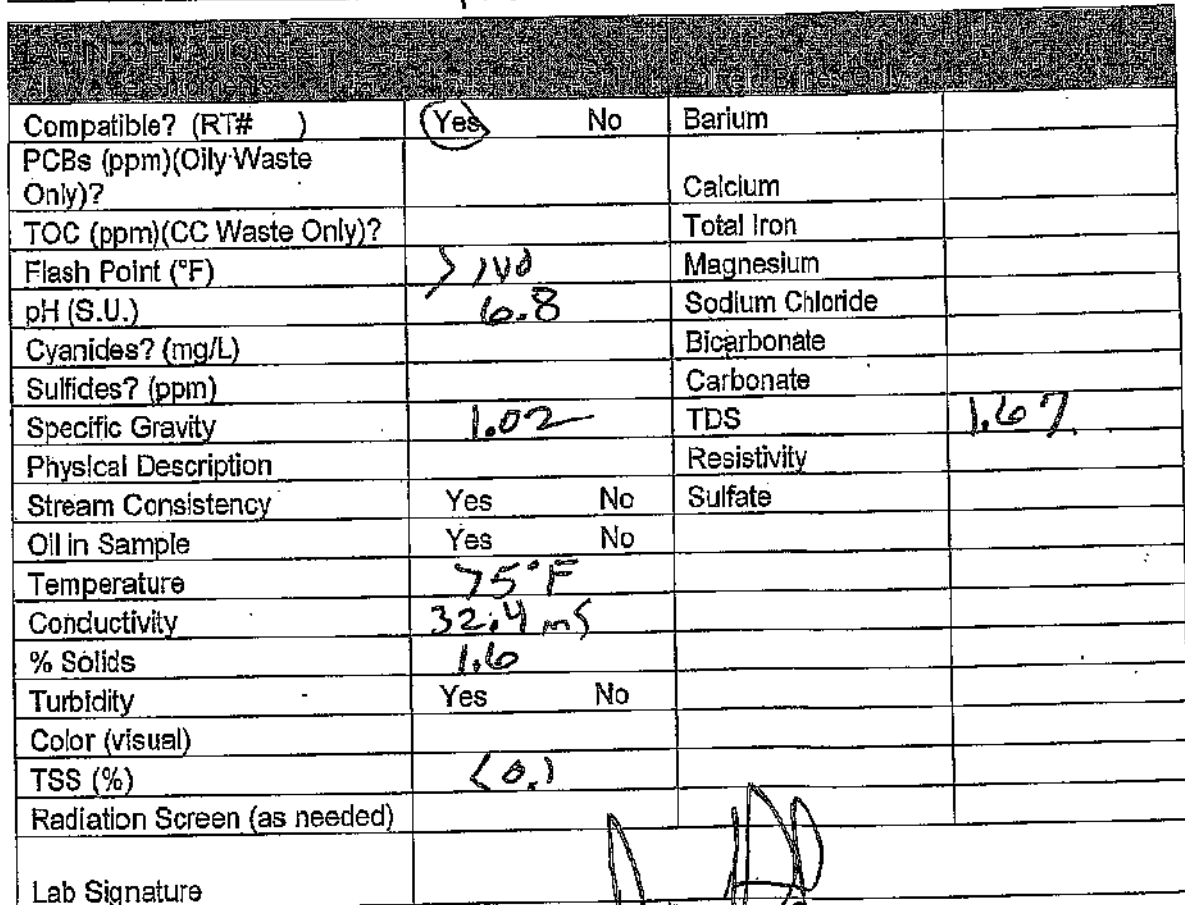 LAB INFORMATION
Compatible? (RT# ) Yes No Barium
PCBs (ppm)(Oily Waste
Only)? Calcium
TOC (ppm)(CC Waste Only)? Total Iron
Flash Point (°F) >140 Magnesium
pH (S.U.) 6.8 Sodium Chloride
Cyanides? (mg/L) Bicarbonate
Sulfides? (ppm) Carbonate
Specific Gravity 1.02 TDS 1.67
Physical Description Resistivity
Stream Consistency Yes No Sulfate
Oil in Sample Yes No
Temperature 75°F
Conductivity 32.4 mS
% Solids 1.6
Turbidity Yes No
Color (visual)
TSS (%) <0.1
Radiation Screen (as needed)
Lab Signature